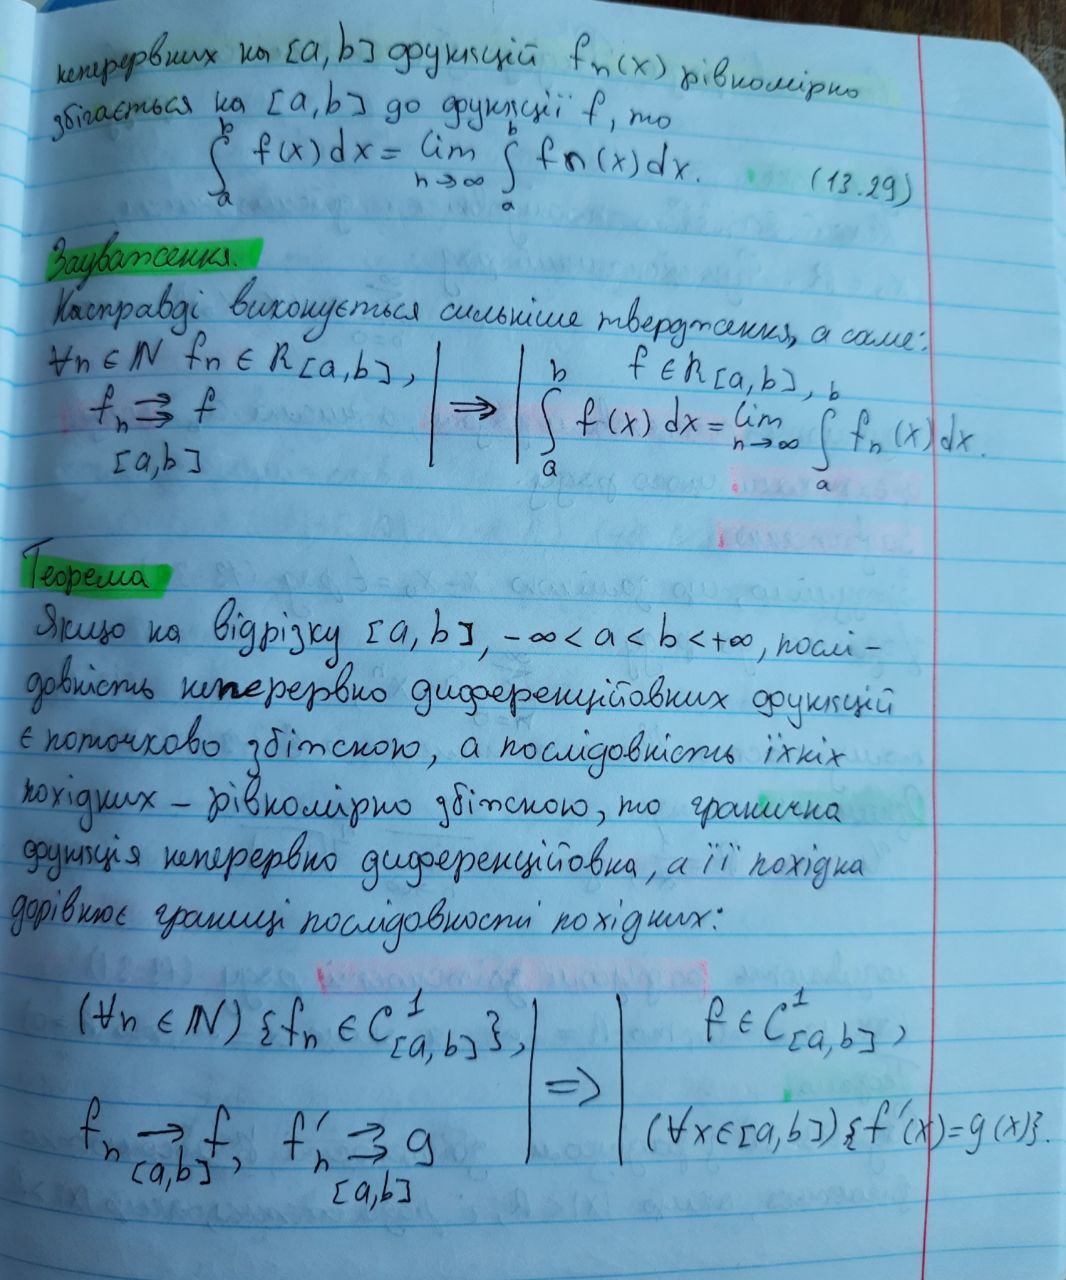 неперервних на [a,b] функцій fₙ(x) рівномірно
збігається на [a,b] до функції f, то
∫ₐᵇ f(x)dx = lim_{n→∞} ∫ₐᵇ fn(x)dx. (13.29)
Зауваження.
Насправді виконується сильніше твердження, а саме:
∀n∈ℕ fₙ∈R[a,b], | ⇒ | f∈R[a,b],
fₙ ⇉ f ∫ₐᵇ f(x)dx = lim_{n→∞} ∫ₐᵇ fₙ(x)dx.
[a,b]
Теорема
Якщо на відрізку [a,b], -∞<a<b<+∞, послі-
довність неперервно диференційовних функцій
є поточково збіжною, а послідовність їхніх
похідних – рівномірно збіжною, то гранична
функція неперервно диференційовна, а її похідна
дорівнює границі послідовності похідних:
(∀n∈ℕ){fₙ∈C¹[a,b]}, | => | f∈C¹[a,b],
fₙ → f, f'ₙ ⇉ g (∀x∈[a,b]){f'(x)=g(x)}.
[a,b] [a,b]